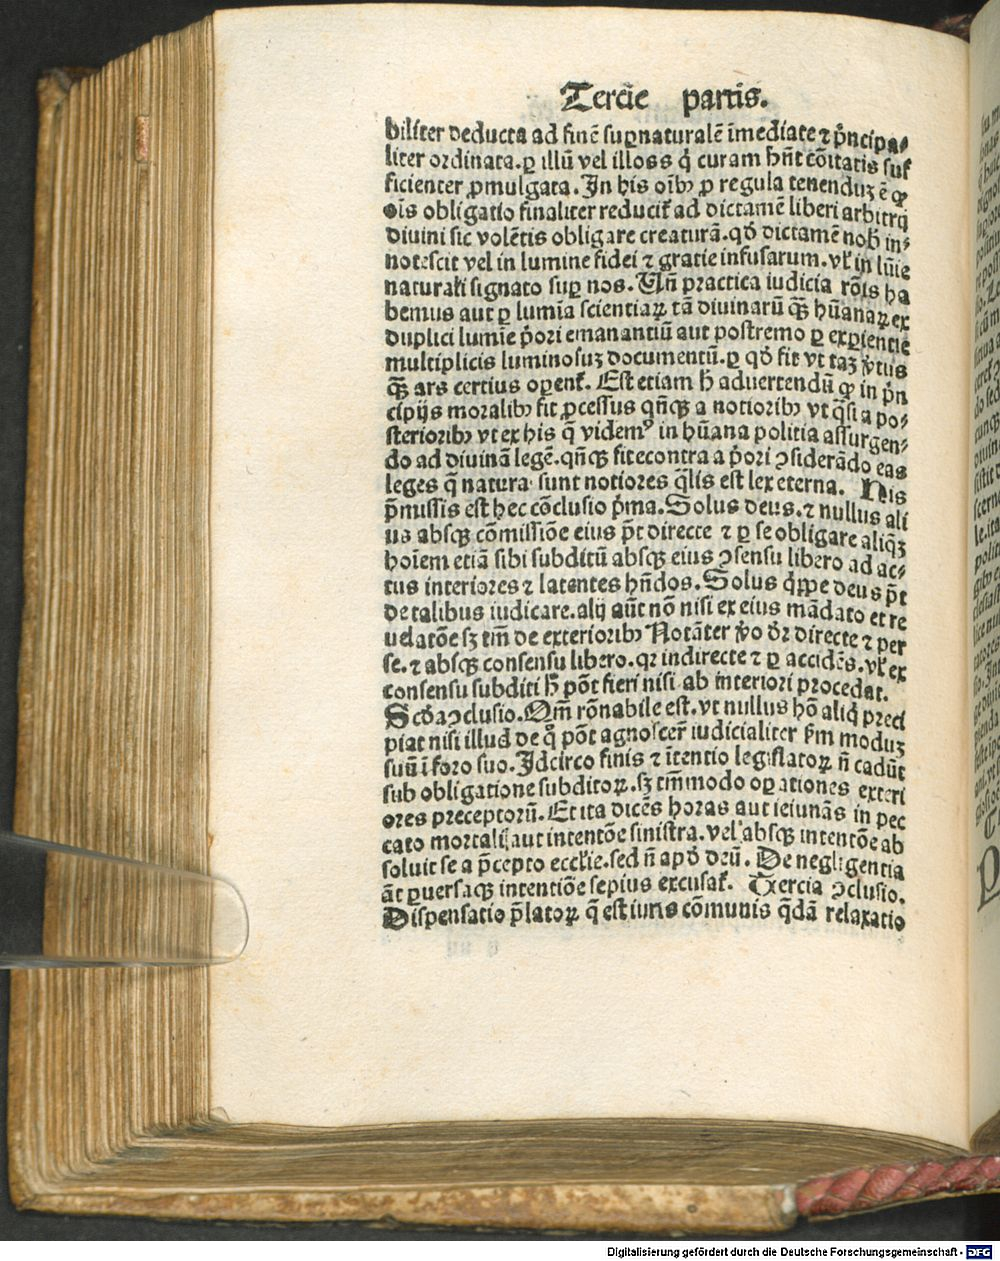 Tercie partis.
biliter deducta ad finē suꝑnaturalē īmediate ⁊ p̄ncipa-
liter ordinata. ꝑ illū vel illoss q̇ curam hn̄t cōitatis suf
ficienter ꝓmulgata. In his oīb⁹ ꝓ regula tenenduꝫ ē ꝙ
oīs obligatio finaliter reducit̄ ad dictamē liberi arbitrij
diuini sic volētis obligare creaturā. qd̓ dictamē nob̄ in-
notescit vel in lumine fidei ⁊ gratie infusarum. vl̓ in lūie
naturali signato suꝑ nos. Un̄ practica iudicia rōis ha
bemus aut ꝑ lumīa scientiaꝝ tā diuinarū qꝫ̄ hūanaꝝ ex
duplici lumīe p̓ori emanantiū aut postremo ꝑ exꝑientie
multiplicis luminosuꝫ documentū. ꝑ qd̓ fit vt taꝫ v̓tus
qꝫ̄ ars certius oꝑent̄. Est etiam h̄ aduertendū ꝙ in p̄n
cipijs moralib⁹ fit ꝓcessus qn̄qꝫ a notiorib⁹ vt q̄si a po-
steriorib⁹ vt ex his q̄ videm⁹ in hūana politia assurgen-
do ad diuinā legē. qn̄qꝫ fit econtra a p̓ori ꝯsiderādo eas
leges q̄ natura sunt notiores q̄lis est lex eterna. His
p̄missis est hec cōclusio p̓ma. Solus deus. ⁊ nullus ali
us absqꝫ cōmissiōe eius p̄t directe ⁊ ꝑ se obligare aliqꝫ
hoīem etiā sibi subditū absqꝫ eius ꝯsensu libero ad ac-
tus interiores ⁊ latentes hn̄dos. Solus q̇ppe deus p̄t
de talibus iudicare. alij aūt nō nisi ex eius mādato et re
uelatōe sꝫ tm̄ de exteriorib⁹ Notāter v̓o dr̄ directe ⁊ per
se. ⁊ absqꝫ consensu libero. qꝛ indirecte ⁊ ꝑ accidēs. vl̓ ex
consensu subditi h̄ pōt fieri nisi ab interiori procedat.
Scd̓a ꝯclusio. Qm̄ rōnabile est. vt nullus hō aliqd̓ preci
piat nisi illud de q̄ pōt agnoscer̄ iudicialiter ẜm moduꝫ
suū ī foro suo. Idcirco finis ⁊ ītentio legislatoꝝ n̄ cadūt
sub obligatione subditoꝝ. sꝫ tm̄modo oꝑationes exteri
ores preceptorū. Et ita dicēs horas aut ieiunās in pec
cato mortali aut intentōe sinistra. vel absqꝫ intentōe ab
soluit se a p̄cepto eccl̓ie. sed n̄ apd̓ deū. De negligentia
āt ꝑuersaqꝫ intentiōe sepius excusat̄. Tercia ꝯclusio.
Dispensatio p̄latoꝝ q̄ est iuris cōmunis q̄dā relaxatio
Digitalisierung gefördert durch die Deutsche Forschungsgemeinschaft - DFG